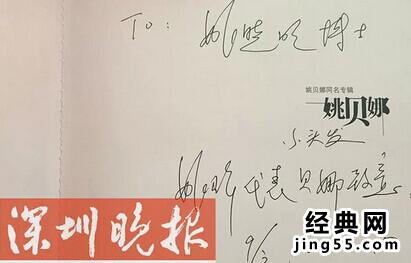 To: 姚晓明博士
姚贝娜同名专辑
姚贝娜
小头发
姚峰代表贝娜
9/2
深圳晚报
经典网
jing55.com